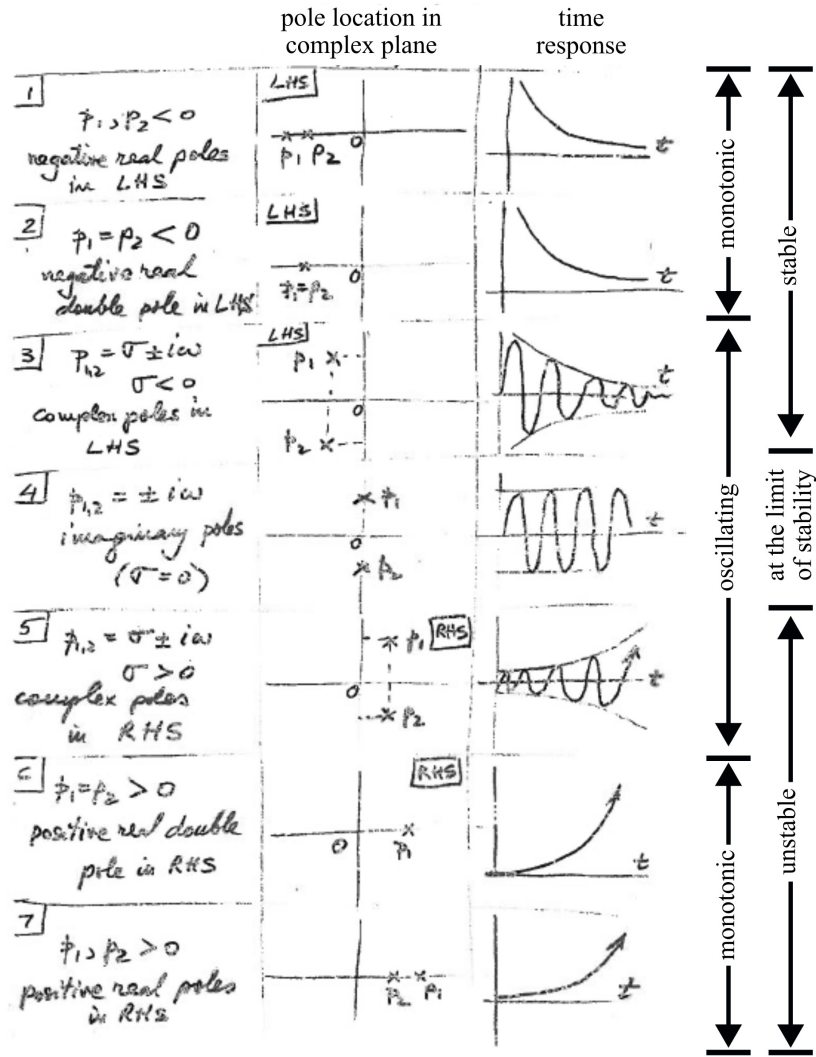 pole location in
complex plane
time
response
1
p₁, p₂ < 0
negative real poles
in LHS
LHS
p₁ p₂
0
t
2
p₁ = p₂ < 0
negative real
double pole in LHS
LHS
p₁=p₂
0
t
3
p₁,₂ = σ ± iω
σ < 0
complex poles in
LHS
LHS
p₁
0
p₂
t
4
p₁,₂ = ± iω
imaginary poles
(σ = 0)
p₁
0
p₂
t
5
p₁,₂ = σ ± iω
σ > 0
complex poles
in RHS
RHS
p₁
0
p₂
t
p₁ = p₂ > 0
positive real double
pole in RHS
RHS
0
p₁
t
7
p₁, p₂ > 0
positive real poles
in RHS
p₂ p₁
t
monotonic
oscillating
monotonic
stable
at the limit
of stability
unstable